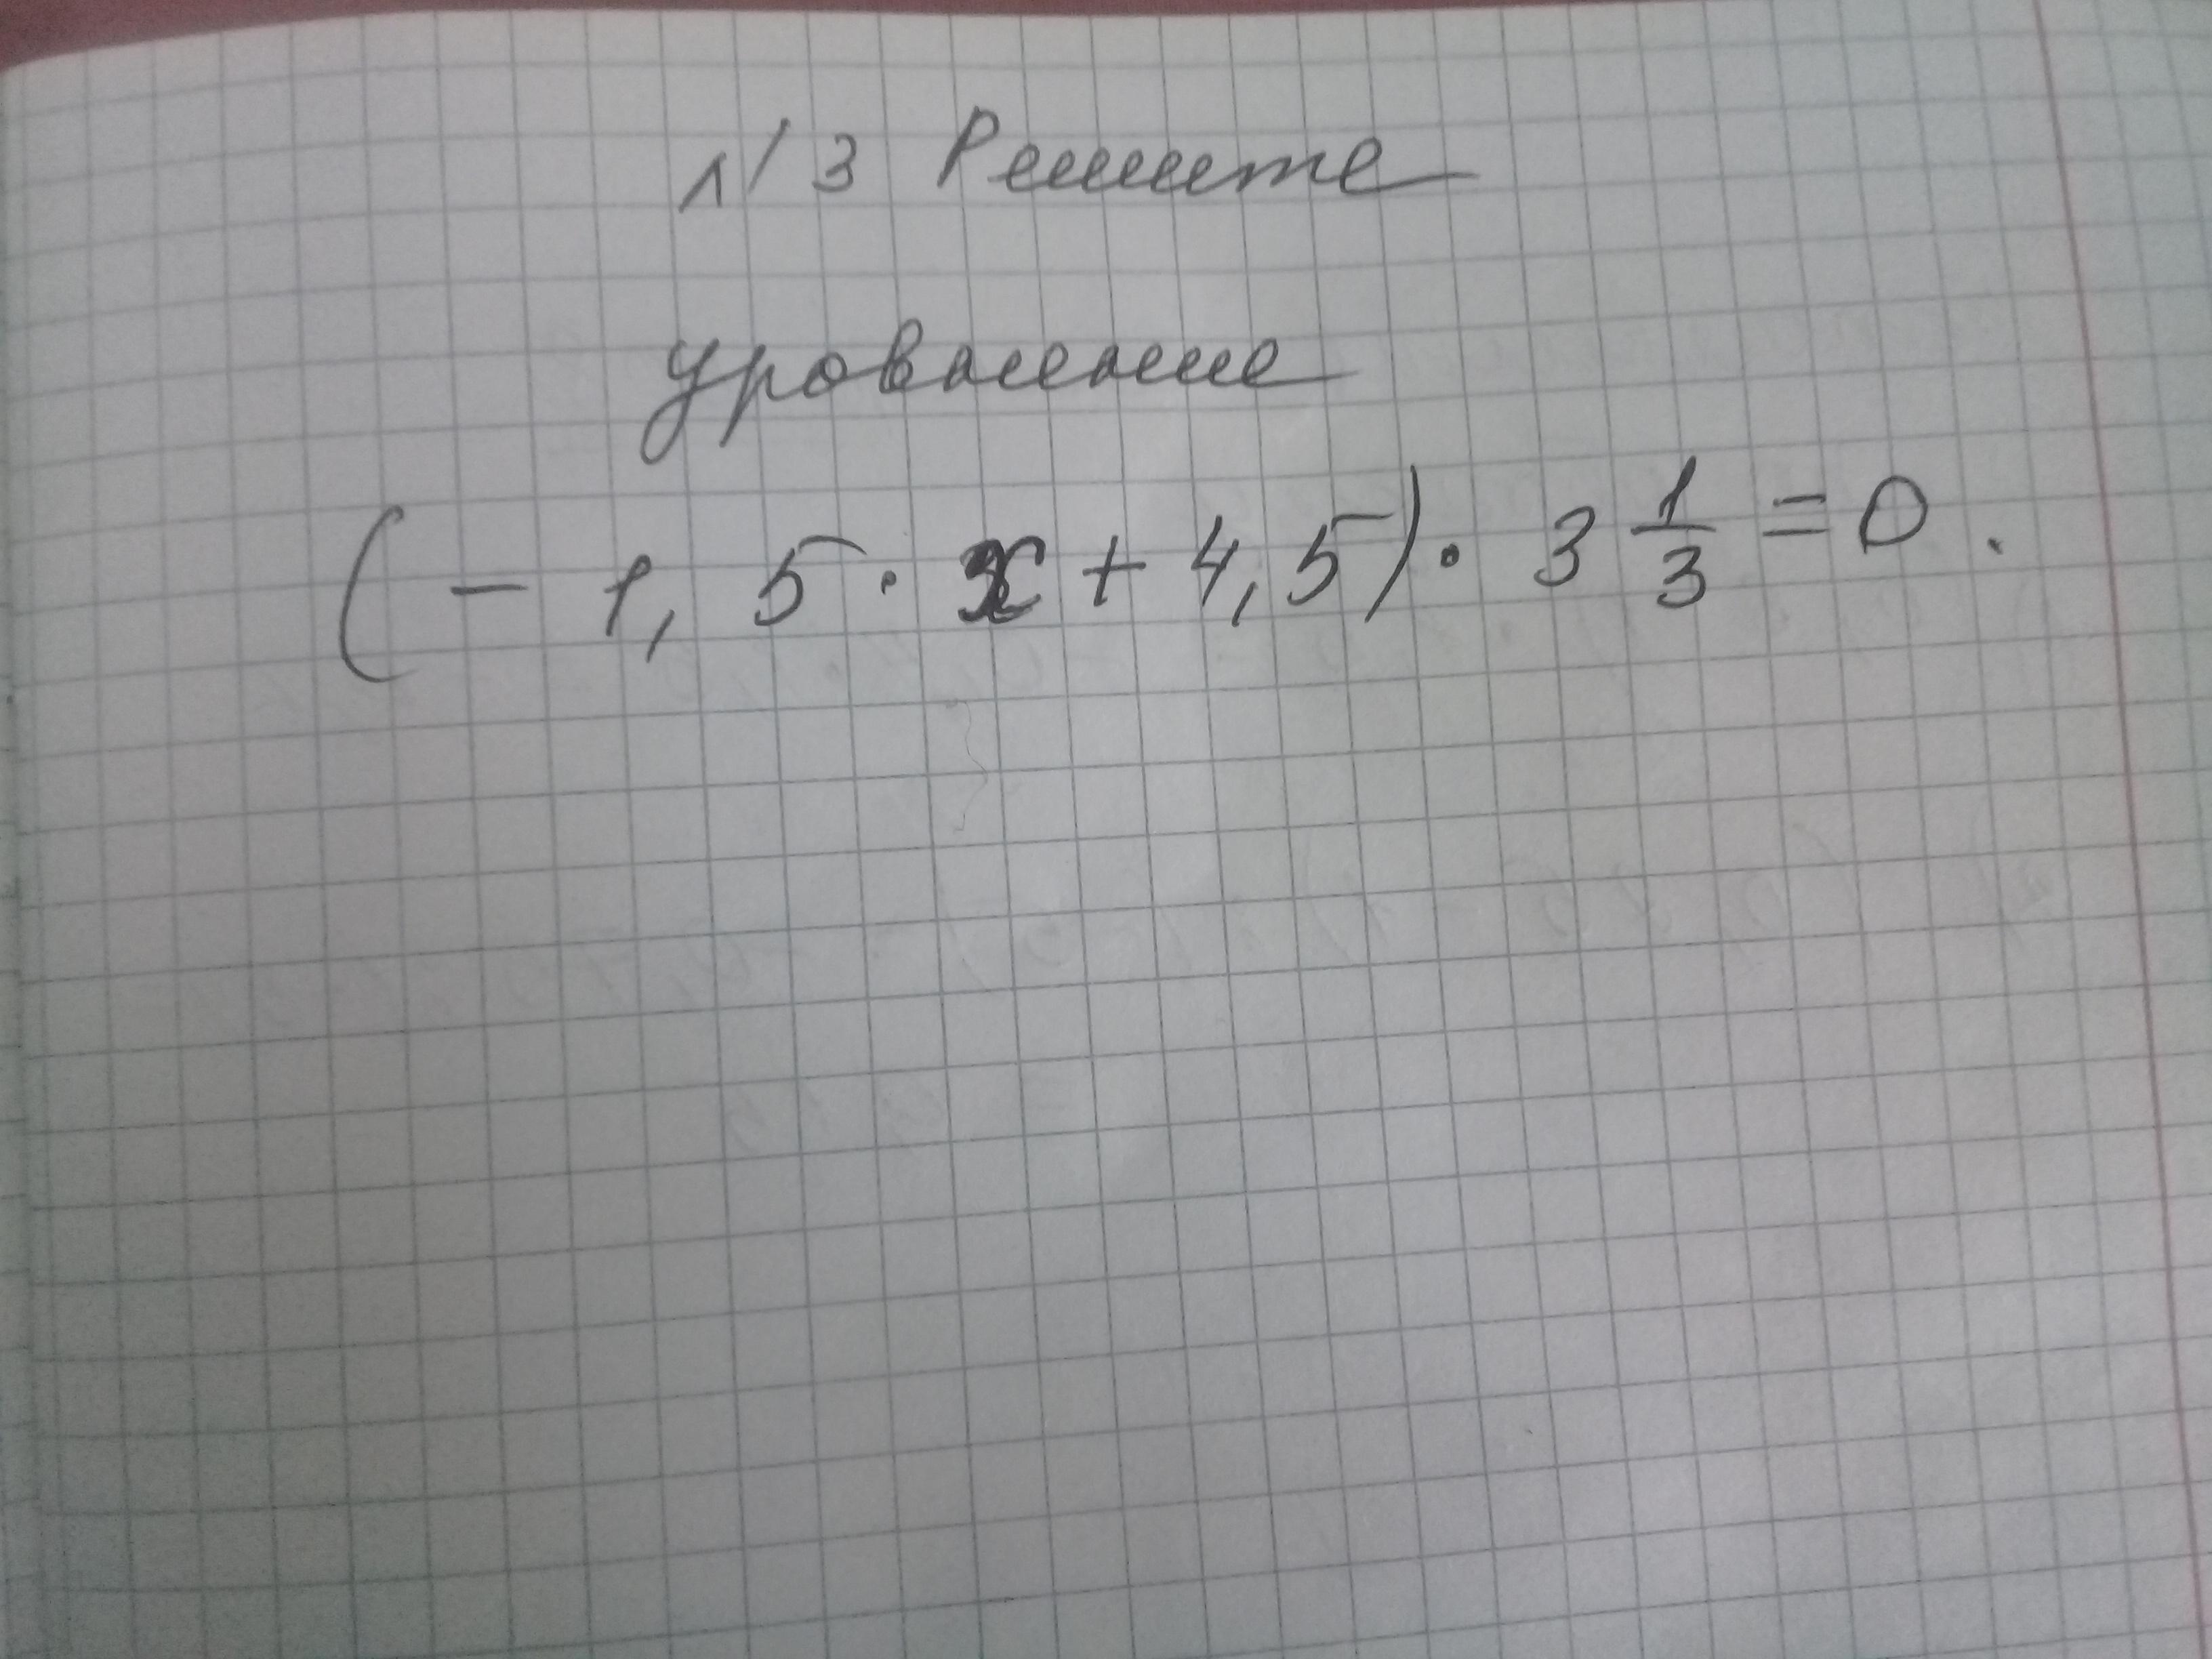 №3 Решите
уровнение
(- 1,5 · x + 4,5) · 3 1/3 = 0.